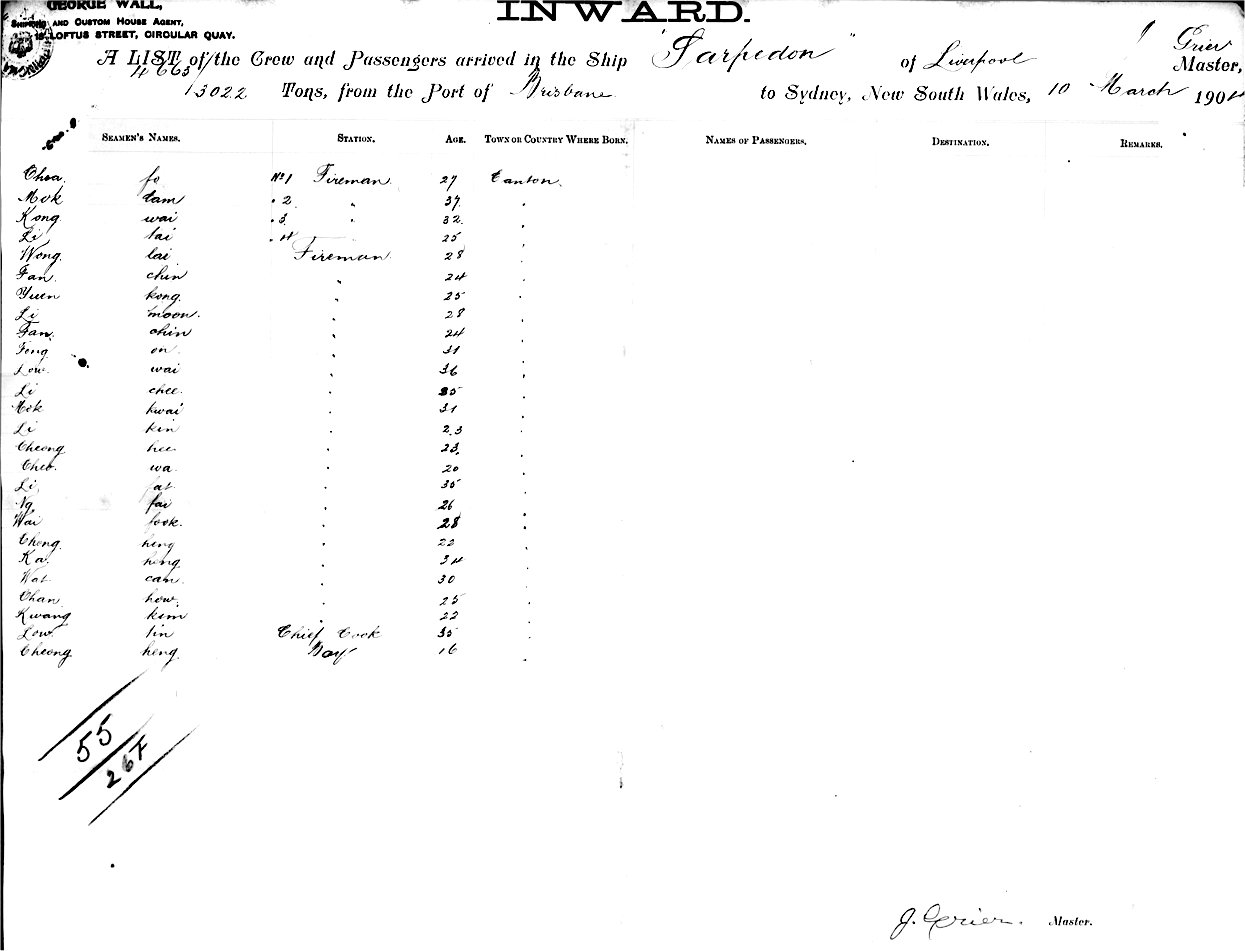 GEORGE WALL,
SHIPPING AND CUSTOM HOUSE AGENT,
LOFTUS STREET, CIRCULAR QUAY.
INWARD.
A LIST of the Crew and Passengers arrived in the Ship "Sarpedon" of Liverpool J Grier Master,
4663
13022 Tons, from the Port of Brisbane to Sydney, New South Wales, 10 March 190
SEAMEN'S NAMES. STATION. AGE. TOWN OR COUNTRY WHERE BORN. NAMES OF PASSENGERS. DESTINATION. REMARKS.
fo No 1 Fireman 27 Canton.
Mok tam " 2 " 37 "
Kong wai " 3 " 32 "
Li tai " 4 25 "
Wong lai Fireman 28 "
Fan chin " 24 "
Yuen kong " 25 "
Li moon. " 28 "
Fan chin " 24 "
Fong on " 31 "
Low wai " 36 "
Li chee " 35 "
Mok kwai " 31 "
Li kin " 23 "
Cheong hee " 23 "
wa " 20 "
Li fat " 35 "
Ng fai " 26 "
Wai fook. " 28 "
Chong heng " 22 "
Ka hing " 34 "
Wat can " 30 "
Chan how " 25 "
Kwang kim " 22 "
Low tin Chief Cook 35 "
Cheong heng Boy 16 "
55
26 F
J. Grier. Master.